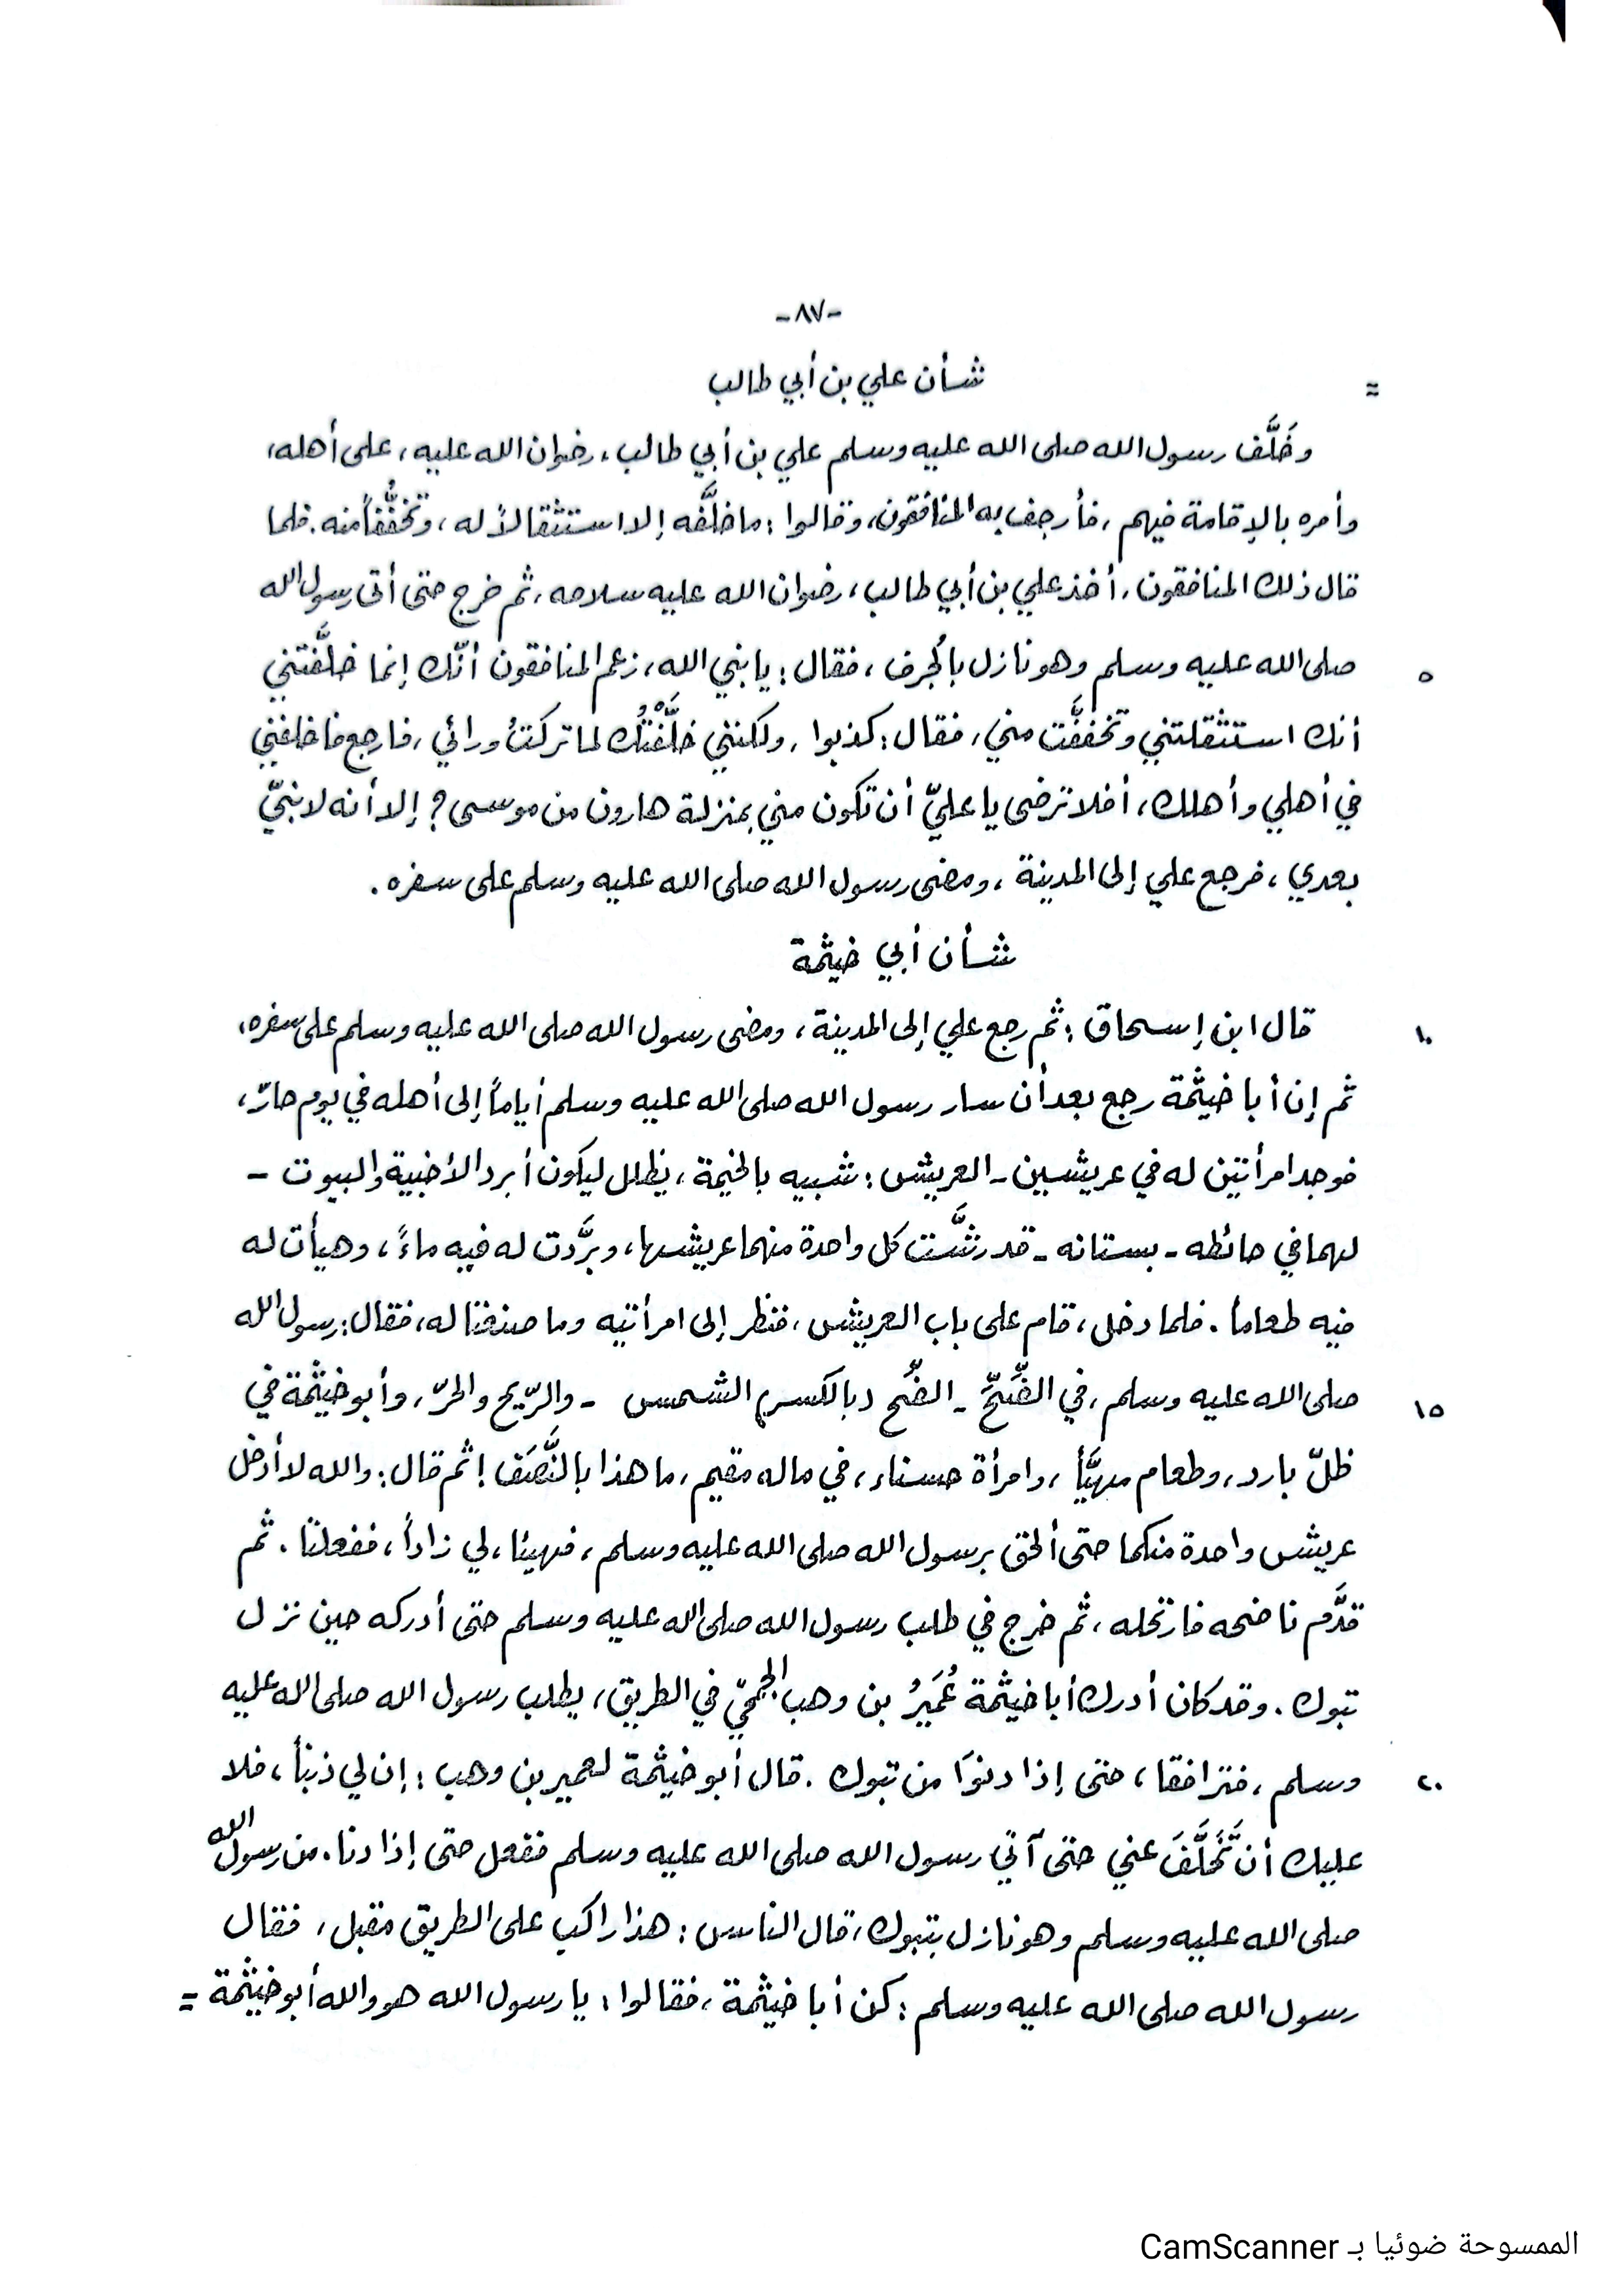 -٨٧-
= شأن علي بن أبي طالب
وخَلَّف رسول الله صلى الله عليه وسلم علي بن أبي طالب، رضوان الله عليه، على أهله،
وأمره بالإقامة فيهم، فأرجف به المنافقون، وقالوا: ما خلَّفه إلا استثقالاً له، وتخفُّفاً منه. فلما
قال ذلك المنافقون، أخذ علي بن أبي طالب، رضوان الله عليه سلاحه، ثم خرج حتى أتى رسول الله
٥ صلى الله عليه وسلم وهو نازل بالجُرف، فقال: يا نبي الله، زعم المنافقون أنّك إنما خلَّفتني
أنك استثقلتني وتخففَّت مني، فقال: كذبوا، ولكنني خلَّفْتُك لما تركتُ ورائي، فارجع فاخلفني
في أهلي وأهلك، أفلا ترضى يا عليّ أن تكون مني بمنزلة هارون من موسى؟ إلا أنه لا نبيّ
بعدي، فرجع علي إلى المدينة، ومضى رسول الله صلى الله عليه وسلم على سفره.
شأن أبي خيثمة
١٠ قال ابن إسحاق: ثم رجع علي إلى المدينة، ومضى رسول الله صلى الله عليه وسلم على سفره،
ثم إن أبا خيثمة رجع بعد أن سار رسول الله صلى الله عليه وسلم أياماً إلى أهله في يوم حارّ،
فوجد امرأتين له في عريشين - العريش: شبيه بالخيمة، يظلل ليكون أبرد الأخبية والبيوت -
لهما في حائطه - بستانه - قد رشَّت كل واحدة منهما عريشها، وبرَّدت له فيه ماءً، وهيأت له
فيه طعاماً. فلما دخل، قام على باب العريش، فنظر إلى امرأتيه وما صنعتا له، فقال: رسول الله
١٥ صلى الله عليه وسلم، في الضِّحِّ - الضِّح (بالكسر) الشمس - والرّيح والحرّ، وأبو خيثمة في
ظلّ بارد، وطعام مهيَّأ، وامرأة حسناء، في ماله مقيم، ما هذا بالنَّصَف! ثم قال: والله لا أدخل
عريش واحدة منكما حتى ألحق برسول الله صلى الله عليه وسلم، فهيئا، لي زاداً، ففعلتا. ثم
قدَّم ناضحه فارتحله، ثم خرج في طلب رسول الله صلى الله عليه وسلم حتى أدركه حين نزل
تبوك. وقد كان أدرك أبا خيثمة عُمَيرُ بن وهب الجمحيّ في الطريق، يطلب رسول الله صلى الله عليه
٢٠ وسلم، فترافقا، حتى إذا دنوَا من تبوك. قال أبو خيثمة لعمير بن وهب: إن لي ذنباً، فلا
عليك أن تَّخَلَّفَ عني حتى آتي رسول الله صلى الله عليه وسلم ففعل حتى إذا دنا. من رسول الله
صلى الله عليه وسلم وهو نازل بتبوك، قال الناس: هذا راكب على الطريق مقبل، فقال
رسول الله صلى الله عليه وسلم: كن أبا خيثمة، فقالوا: يا رسول الله هو والله أبو خيثمة =
الممسوحة ضوئيا بـ CamScanner